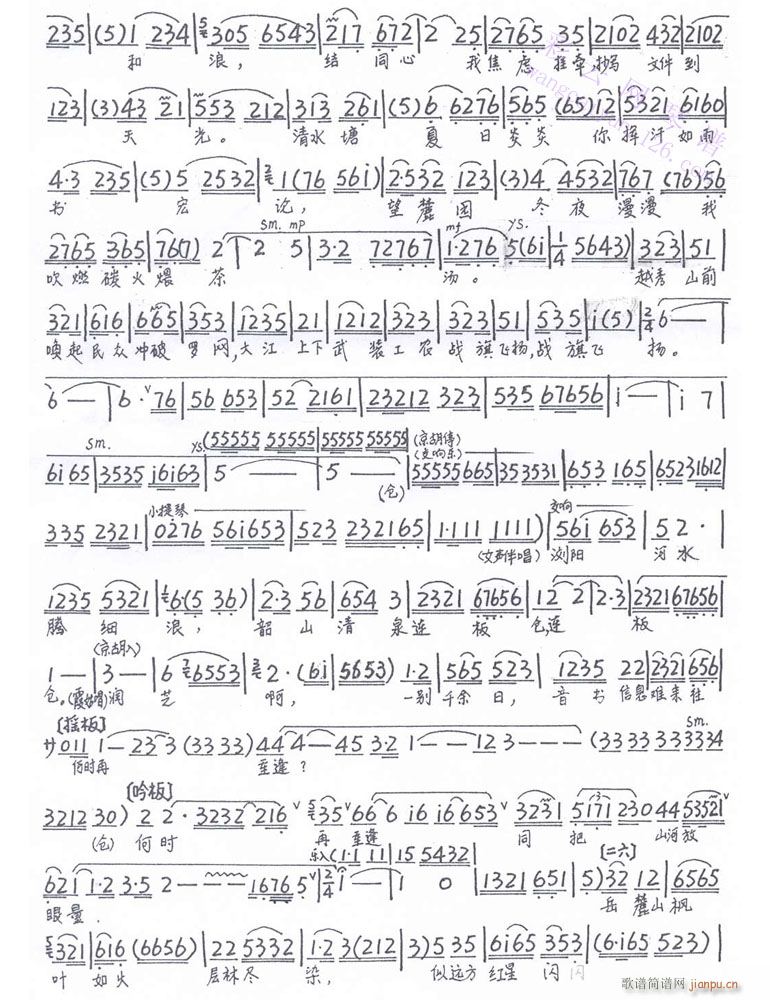 235|(5)1 234|305 6543|217 672|2 25|2765 35|2102 432|2102
和 浪， 结 同心 我焦虑 挂牵抄写 文件到
123|(3)43 21|553 212|313 261|(5)6 6276|565 (65)12|5321 6160
天 光。 清水塘 夏 日炎炎 你 挥汗如雨
4·3 235|(5)5 2532|1(76 561)|2·532 123|(3)4 4532|767 (76)56
书 宏 论， 望麓园 冬 夜漫漫 我
sm. mp mf ys.
2765 365|76(7) 2|2 5|3·2 72767|1·276 5(6i|1/4 5643)|323|51
吹燃碳火煨 茶 汤。 越秀山前
321|616|665|353|1235|21|1212|323|323|51|535|i(5)|2/4 6—
唤起民众冲破 罗网，大江上下武 装工农战旗飞扬，战旗飞 扬。
6—|6·76|56 653|52 2161|23212 323|535 67656|i—|i 7
sm. ys. (55555 55555|55555 55555) (京胡停)
(交响乐)
6i 65|3535 i6i63|5—|5—|55555 665|353531|653 165|65231612
(仓)
小提琴 交响
335 2321|0276 56i653|523 232165|1·111 1111)|56i 653|52·|
(女声伴唱) 浏阳 河水
1235 5321|6·(5 36)|2·3 56|654 3|2321 67656|12 2|2·3|2321 67656
腾细 浪， 韶山清 泉连 板 仓，连 板
(京胡入)
1—|3—|6 76553|2·(6i|5653)|1·2|565 523|1235 22|2321 656
仓。(霞姑唱)润 芝 啊， 一别千余 日，音书 信息难来往
〔摇板〕 sm.
サ011 1—233(3333)444—453·21——123———(3333333334
何时再 重逢？
〔吟板〕
3212 30)22·3232 216 35 666 i6 i6653 32331 5171 230 44 53521
(仓) 何时 再 重逢 同 把 山河放
乐入(1·1 11|15 5432| 〔二六〕
621 1·2 3·5 2———16765|2/4 i—|1 0|1321 651|5)32 12|6565
眼量． 岳麓山枫
321|616 (6656)|22 5332|1·2 3(212|3)5 35|6i65 353|(6·i65 523)|
叶 如火 层林尽 染， 似远方 红星 闪闪
歌谱简谱网 jianpu.cn